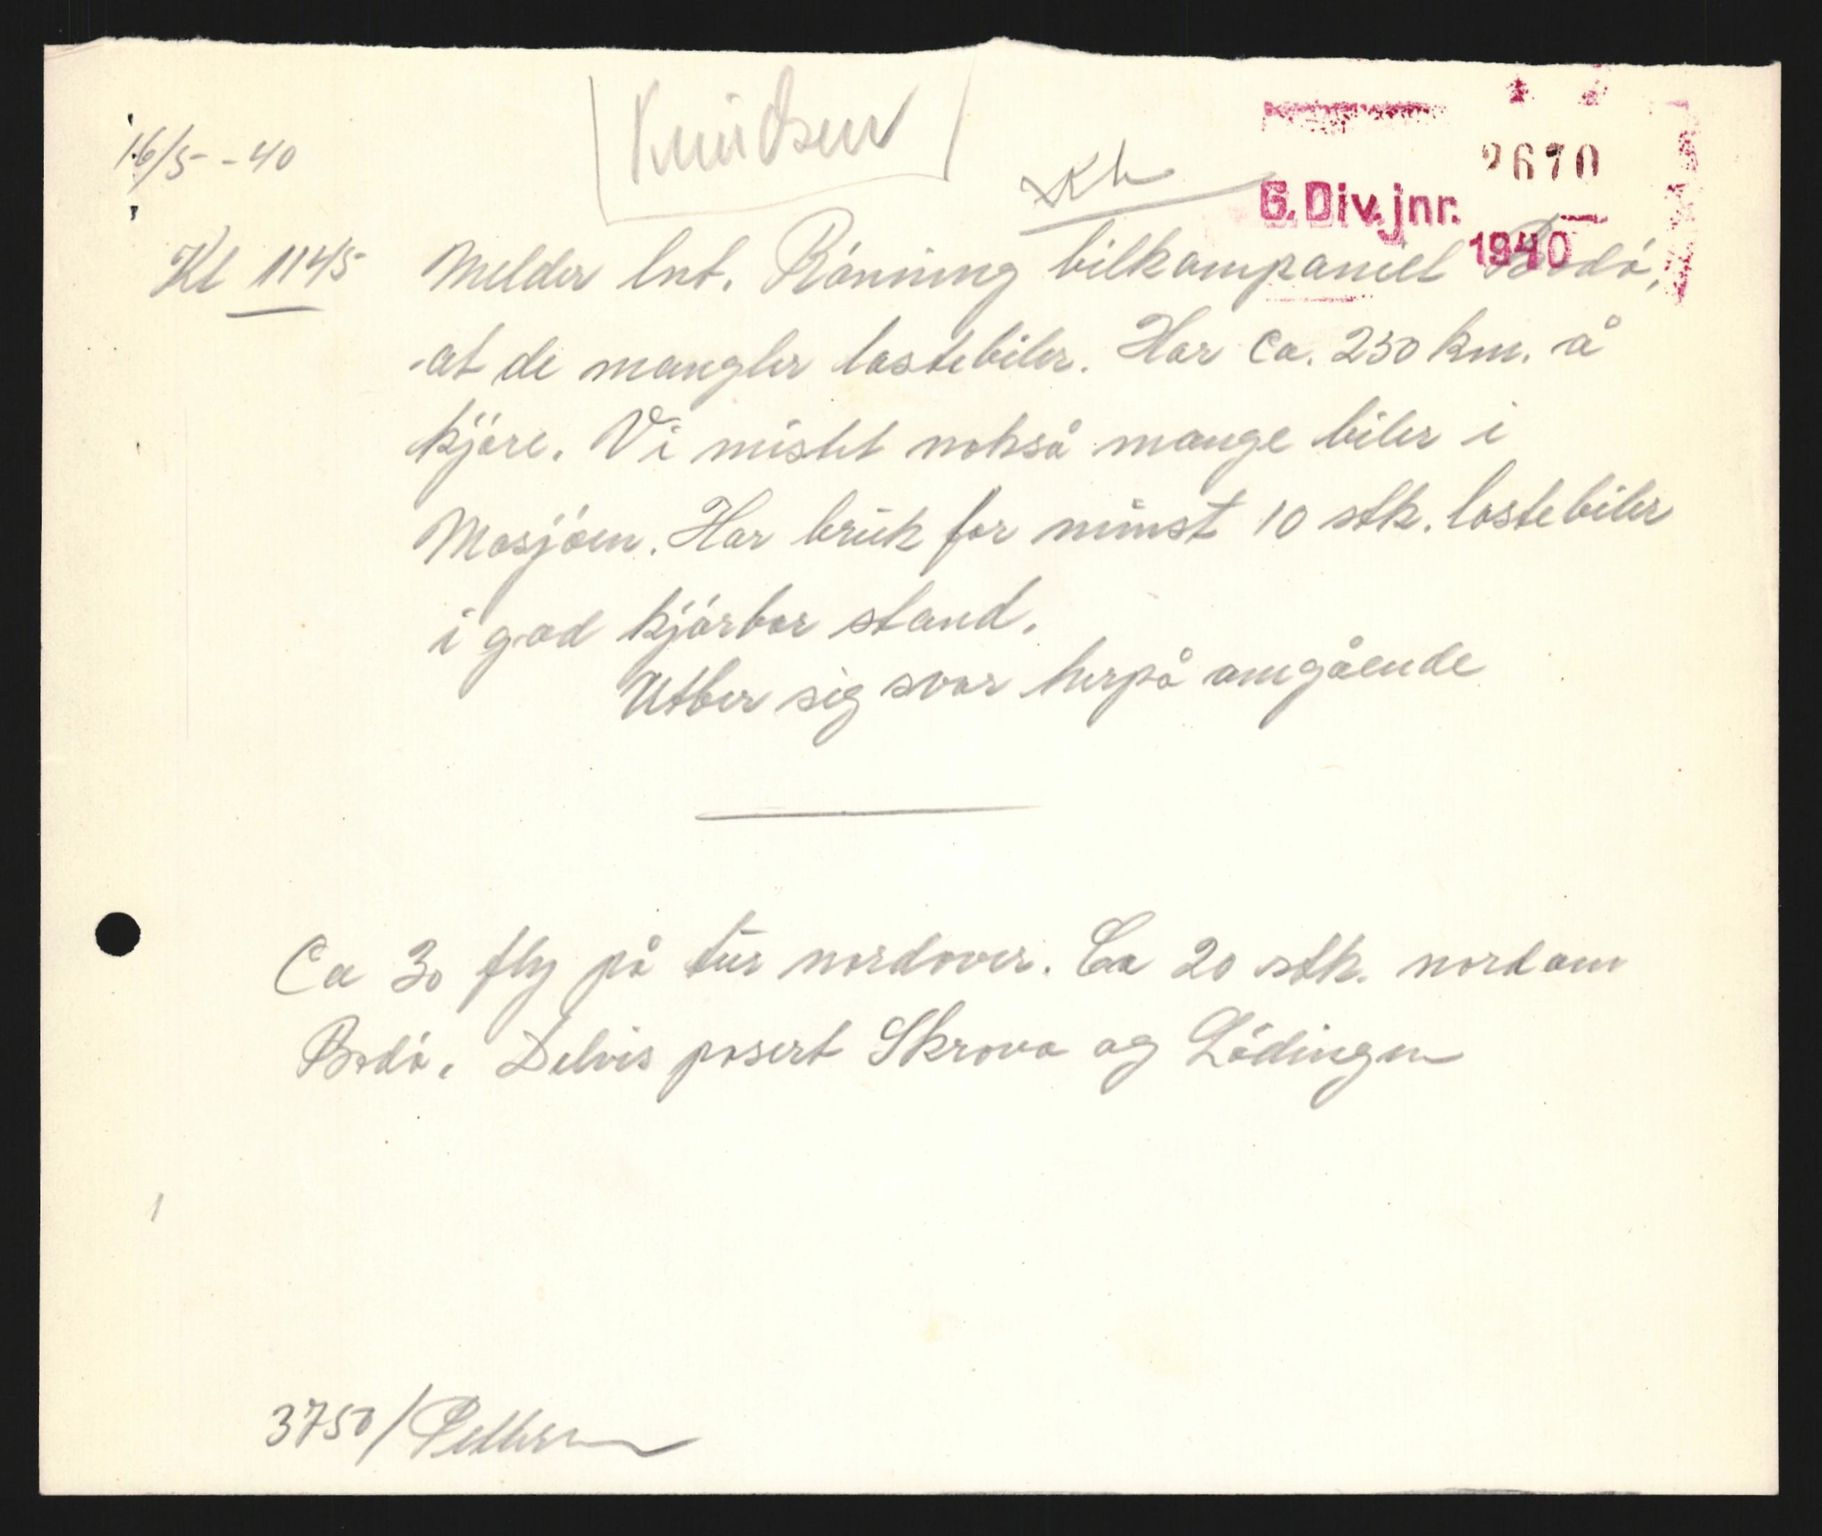 Knudsen
16/5 - 40
2670
6. Div. jnr.
1940
Kl 1145 Melder lnt. Rónning bilkompaniet Bodó,
at de mangler lastebiler. Har ca. 230 km. å
kjóre. Vi mistet nokså mange biler i
Mosjóen. Har brŭk for minst 10 stk. lastebiler
i god kjórbar stand.
Utber sig svar herpå omgående
Ca 30 fly på tŭr nordover. Ca 20 stk. nord om
Bodó. Delvis posert Skrova og Lódingen
3750/Pettersen